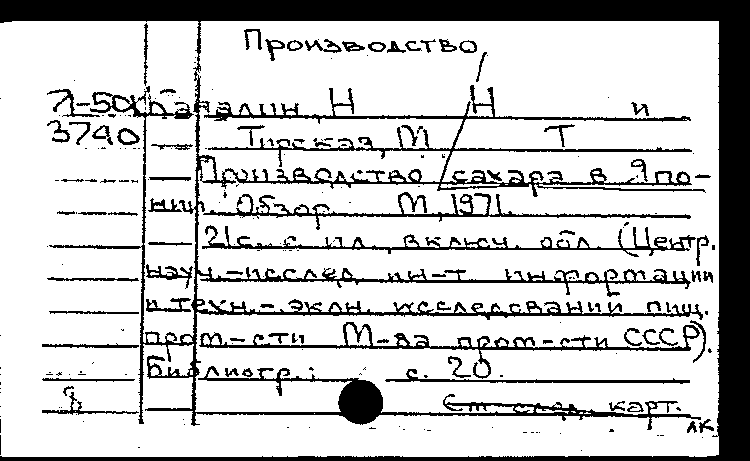 Производство
Л-50К Каналин, Н Н и
3740 Тирская, М Т
Производство сахара в Япо-
нии. Обзор М, 1971.
21с. с ил., включ. обл. (Центр.
науч.-исслед. ин-т информации
и техн.-экон. исследований пищ.
пром-сти М-ва пром-сти СССР).
Библиогр.: с. 20.
См. след. карт.